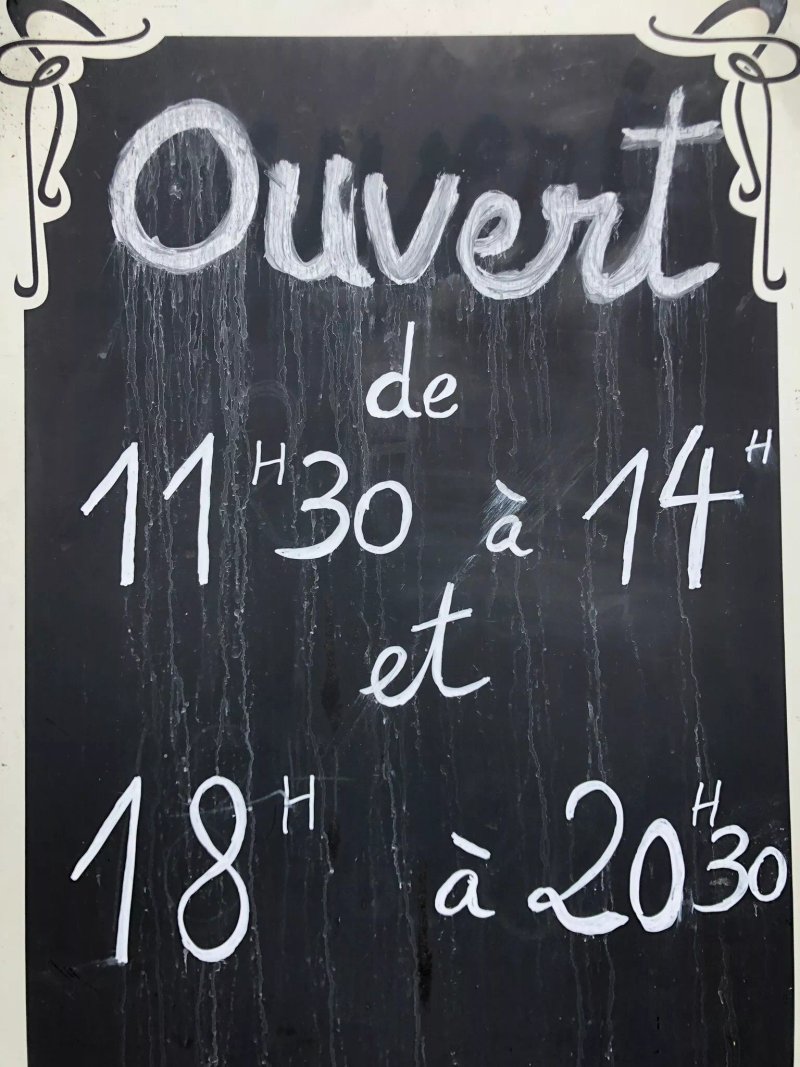 Ouvert
de
11H30 à 14H
et
18H à 20H30